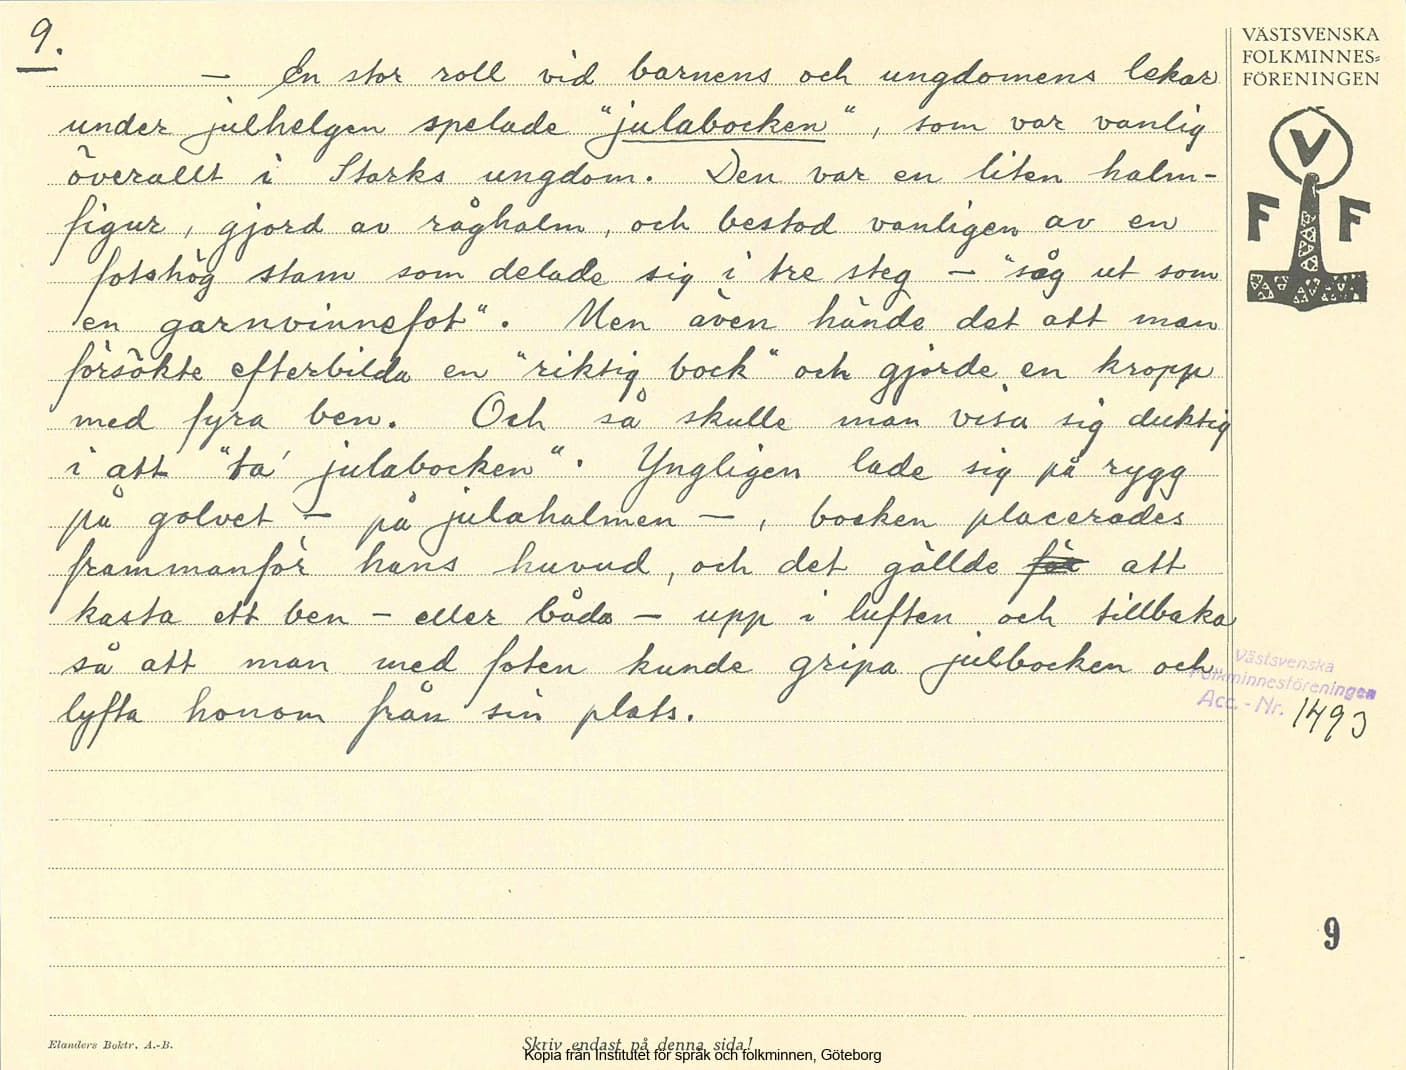 9.
— En stor roll vid barnens och ungdomens lekar
under julhelgen spelade "julabocken", som var vanlig
överallt i Starks ungdom. Den var en liten halm-
figur, gjord av råghalm, och bestod vanligen av en
fotshög stam som delade sig i tre steg — "såg ut som
en garnvinnefot". Men även hände det att man
försökte efterbilda en "riktig bock" och gjorde en kropp
med fyra ben. Och så skulle man visa sig duktig
i att "ta' julabocken". Ynglingen lade sig på rygg
på golvet — på julahalmen —, bocken placerades
frammanför hans huvud, och det gällde för att
kasta ett ben — eller båda — upp i luften och tillbaka
så att man med foten kunde gripa julbocken och
lyfta honom från sin plats.
VÄSTSVENSKA
FOLKMINNES=
FÖRENINGEN
V
F F
Västsvenska
Folkminnesföreningen
Acc.-Nr. 1493
9
Elanders Boktr. A.-B.
Skriv endast på denna sida!
Kopia från Institutet för språk och folkminnen, Göteborg